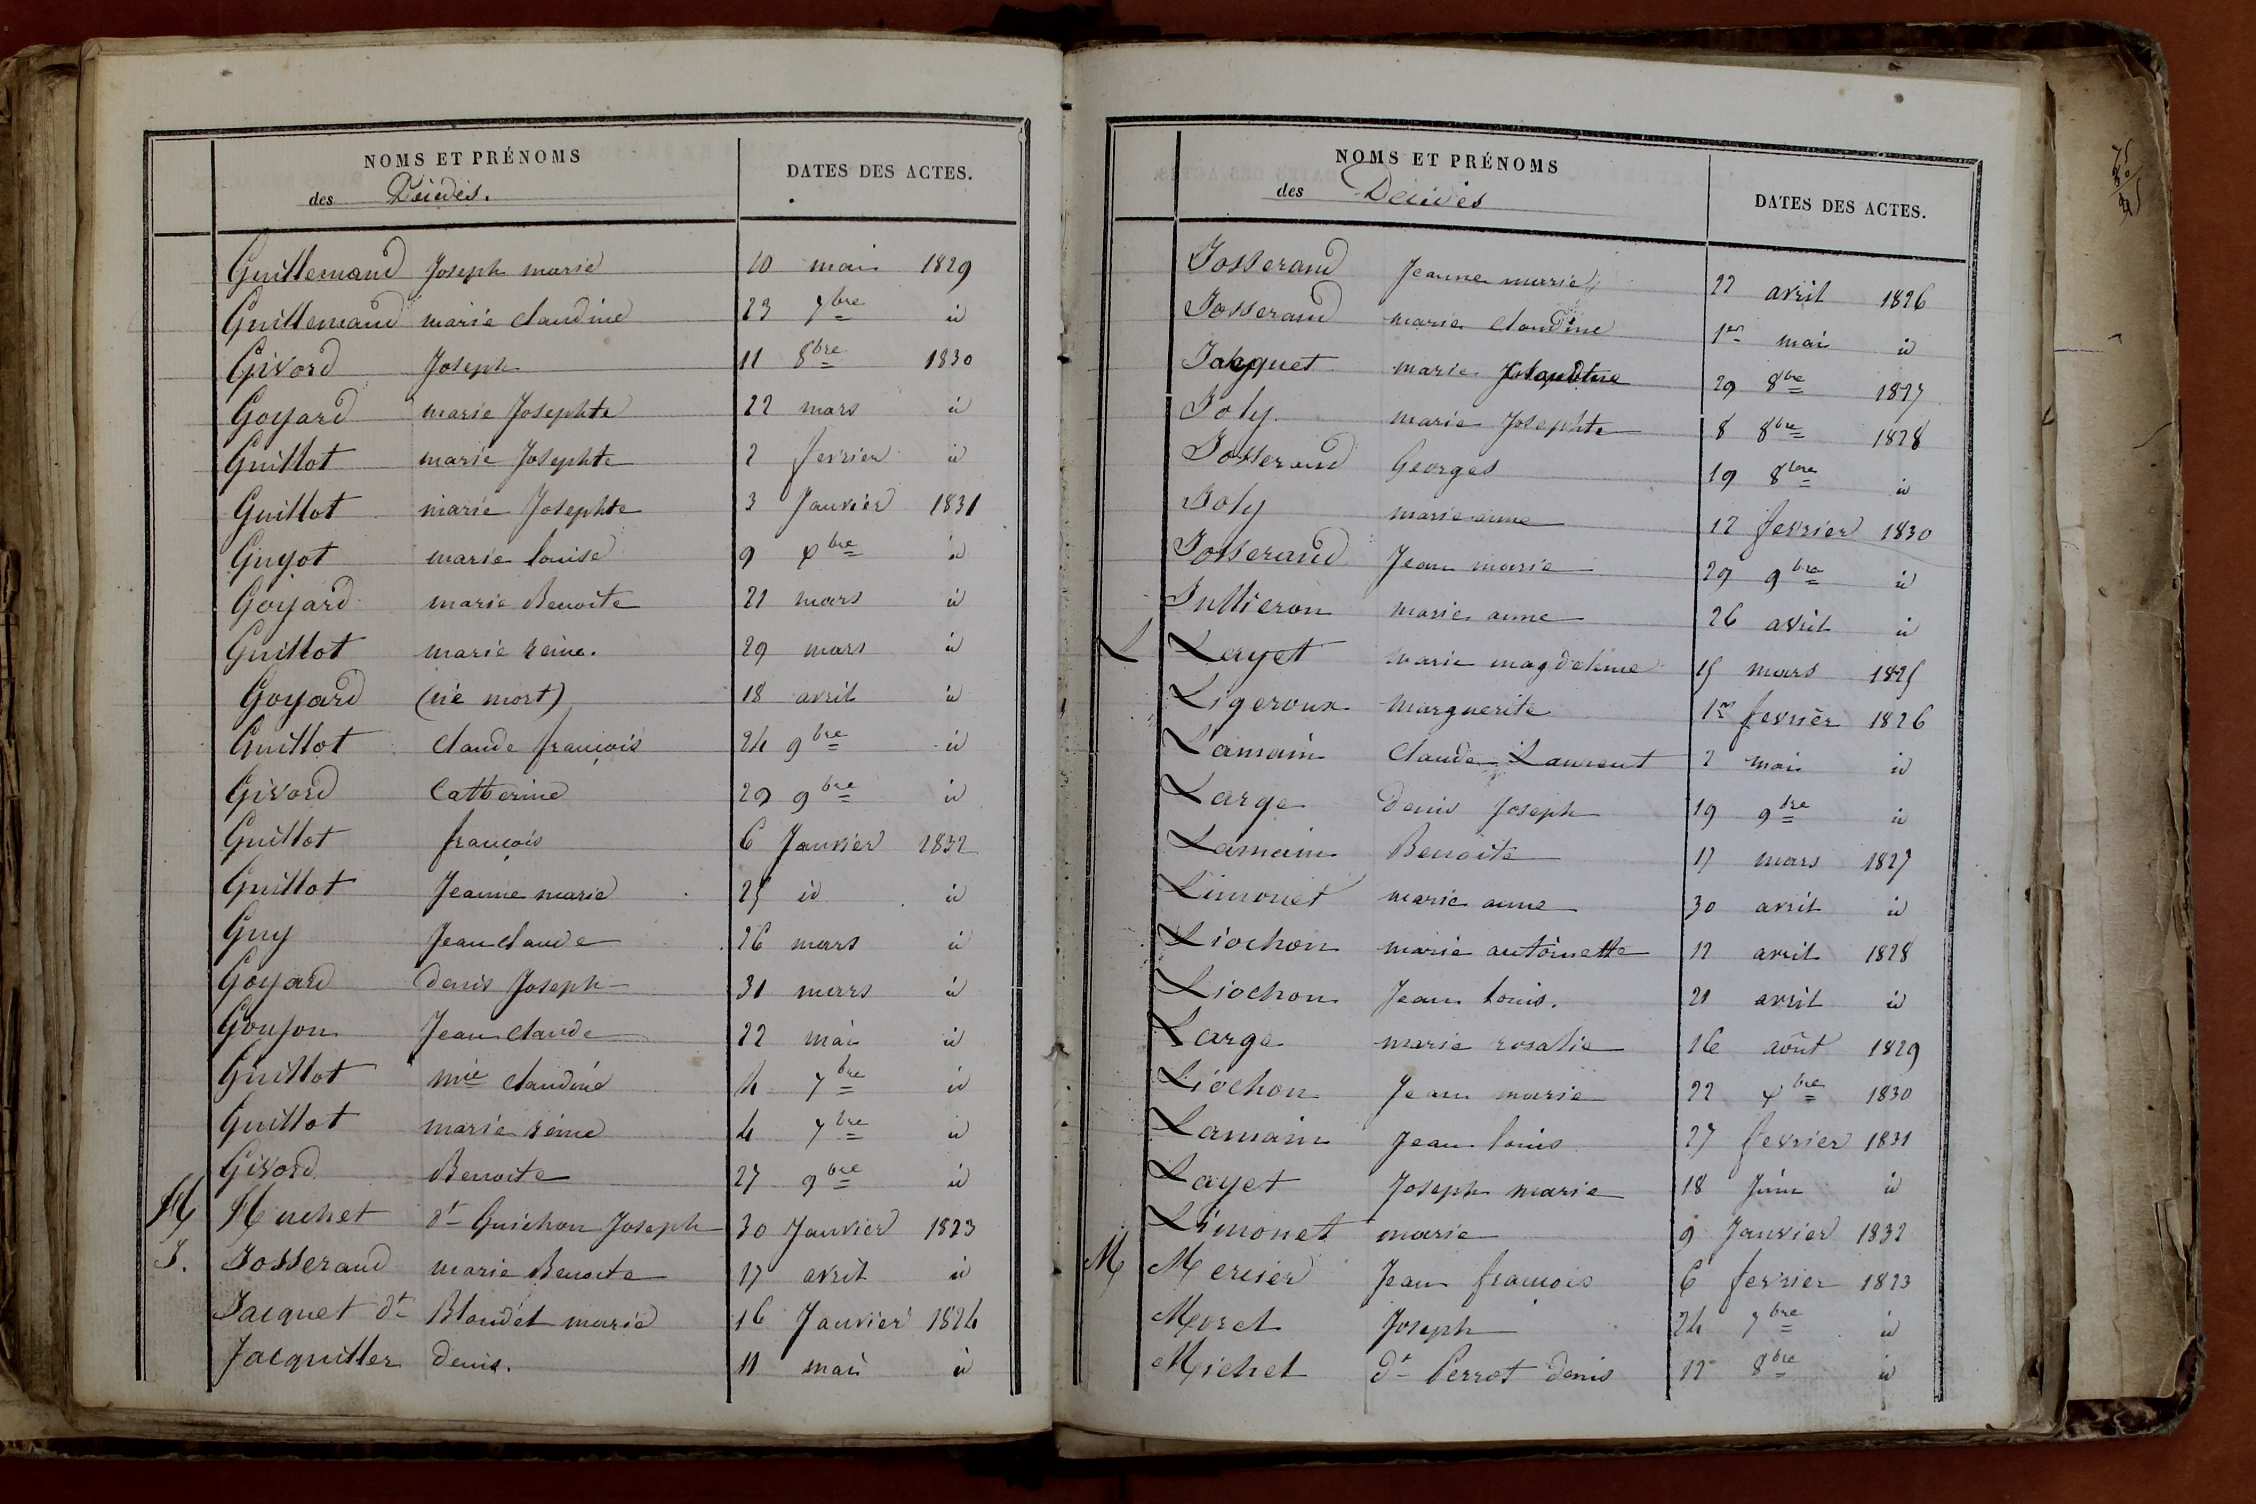 NOMS ET PRÉNOMS
des Décédés.
DATES DES ACTES.
Guillemaud Joseph marie 10 mai 1829
Guillemaud marie claudine 23 7bre id
Givord Joseph 11 8bre 1830
Goyard marie Josephte 22 mars id
Guillot marie Josephte 2 fevrier id
Guillot marie Josephte 3 Janvier 1831
Guyot marie louise 9 xbre id
Goyard marie Benoite 21 mars id
Guillot marie reine. 29 mars id
Goyard (né mort) 18 avril id
Guillot claude françois 24 9bre id
Givord Catherine 29 9bre id
Guillot françois 6 Janvier 1832
Guillot Jeanne marie 25 id id
Guy Jean claude 26 mars id
Goyard denis Joseph 31 mars id
Goujon Jean claude 22 mai id
Guillot mie claudine 4 7bre id
Guillot marie reine 4 7bre id
Givord Benoite 27 9bre id
H Huchet dt Guichon Joseph 30 Janvier 1823
J. Josserand marie Benoite 17 avril id
Jacquet dt Blondet marie 16 Janvier 1824
Jacquiller denis. 11 mai id
NOMS ET PRÉNOMS
des Décédés
DATES DES ACTES.
Josserand Jeanne marie 22 avril 1826
Josserand marie claudine 1er mai id
Jacquet marie claudine 29 8bre 1827
Joly marie Josephte 8 8bre 1828
Josserand Georges 19 8bre id
Joly marie anne 12 fevrier 1830
Josserand Jean marie 29 9bre id
Jullieron marie anne 26 avril id
L Layet marie magdeleine 15 mars 1825
Ligeroux marguerite 1er fevrier 1826
Lamain Claude Laurent 2 mai id
Large denis Joseph 19 9bre id
Lamain Benoite 17 mars 1827
Limonet marie anne 30 avril id
Liochon marie antoinette 12 avril 1828
Liochon Jean louis. 21 avril id
Large marie rosalie 16 août 1829
Liochon Jean marie 22 xbre 1830
Lamain Jean louis 27 fevrier 1831
Layet Joseph marie 18 Juin id
Limonet marie 9 Janvier 1832
M Mercier Jean françois 6 fevrier 1823
Morel Joseph 24 7bre id
Michel dt Perrot denis 12 8bre id